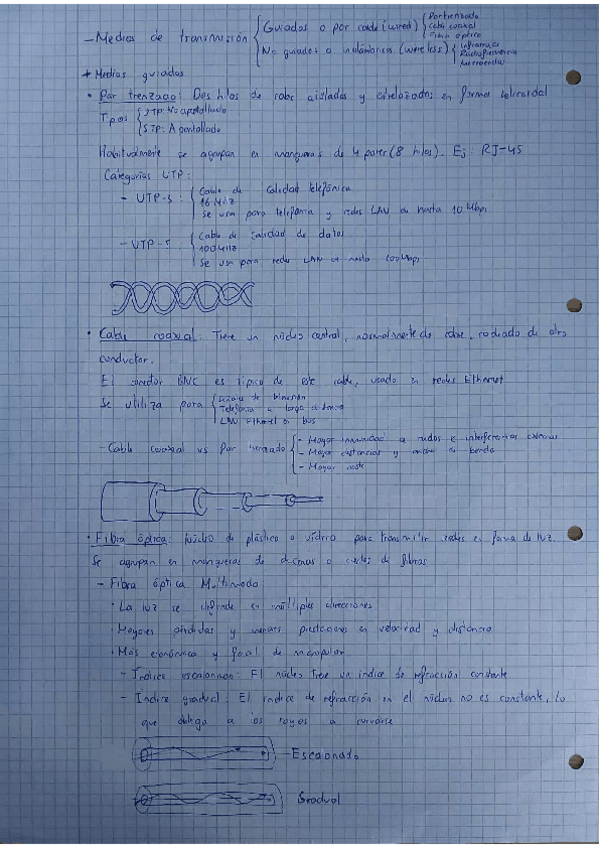 - Medios de transmisión
Guiados o por cable (wired)
Par trenzado
Cable coaxial
Fibra óptica
No guiados o inalámbricos (wireless)
Infrarrojos
Radiofrecuencia
Microondas
+ Medios guiados
• Par trenzado: Dos hilos de cobre aislados y entrelazados en forma helicoidal
Tipos
UTP: No apantallado
STP: Apantallado
Habitualmente se agrupan en mangueras de 4 pares (8 hilos). Ej: RJ-45
Categorías UTP:
- UTP-3:
Cable de calidad telefónica
16 MHz
Se usa para telefonía y redes LAN de hasta 10 Mbps
- UTP-5
Cable de calidad de datos
100 MHz
Se usa para redes LAN de hasta 100 Mbps
• Cable coaxial: Tiene un núcleo central, normalmente de cobre, rodeado de otro
conductor.
El conector BNC es típico de este cable, usado en redes Ethernet
Se utiliza para
Señales de televisión
Telefonía a larga distancia
LAN Ethernet en bus
- Cable coaxial vs Par trenzado
- Mayor inmunidad a ruidos e interferencias externas
- Mayor distancias y ancho de banda
- Mayor coste
• Fibra óptica: Núcleo de plástico o vidrio para transmitir redes en forma de luz.
Se agrupan en mangueras de decenas o cientos de fibras
- Fibra óptica Multimodo
· La luz se difunde en múltiples direcciones
· Mayores pérdidas y menores prestaciones en velocidad y distancia
· Más económica y fácil de manipular
- Índice escalonado: El núcleo tiene un índice de refracción constante
- Índice gradual: El índice de refracción en el núcleo no es constante, lo
que obliga a los rayos a curvarse
Escalonado
Gradual